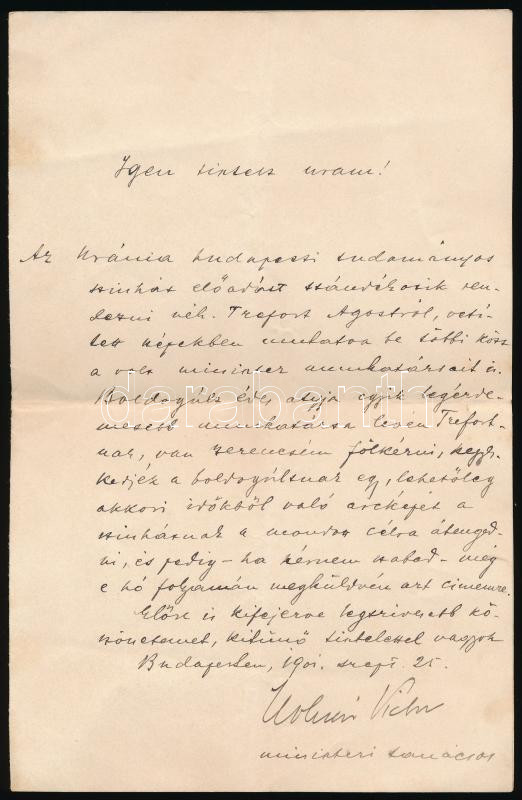 Igen tisztelt uram!
Az Uránia budapesti tudományos
szinház előadást szándékozik ren-
dezni néh. Trefort Ágostról, vetí-
tett képekben mutatva be többi közt
a volt miniszter munkatársait is.
Boldogúlt édes atyja egyik legérde-
mesebb munkatársa lévén Trefort-
nak, van szerencsém fölkérni, kegyes-
kedjék a boldogúltnak egy, lehetőleg
akkori időkből való arcképét a
szinháznak a mondott célra átenged-
ni, és pedig – ha kérnem szabad – még
e hó folyamán megküldvén azt cimemre.
Előre is kifejezve legszivesebb kö-
szönetemet, kitünő tisztelettel vagyok
Budapesten, 1901. szept. 25.
Molnár Viktor
miniszteri tanácsos
darabanth